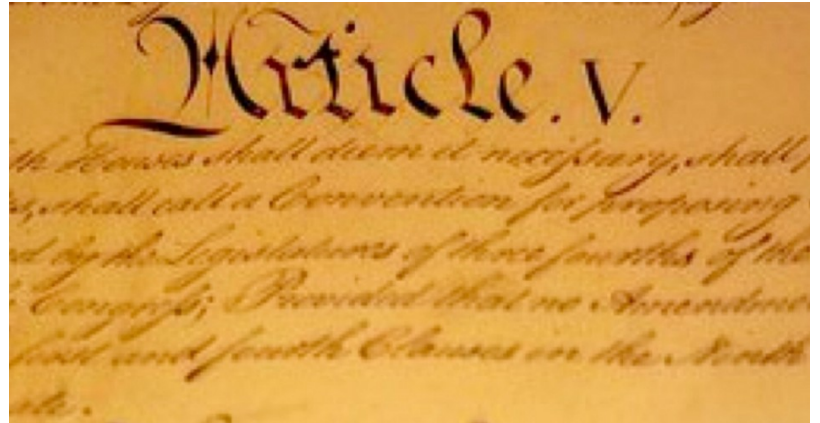 Article. V.
Houses shall deem it necessary, shall
shall call a Convention for proposing
by the Legislatures of three fourths of the
Congress; Provided that no Amendme
first and fourth Clauses in the Ninth
ate.